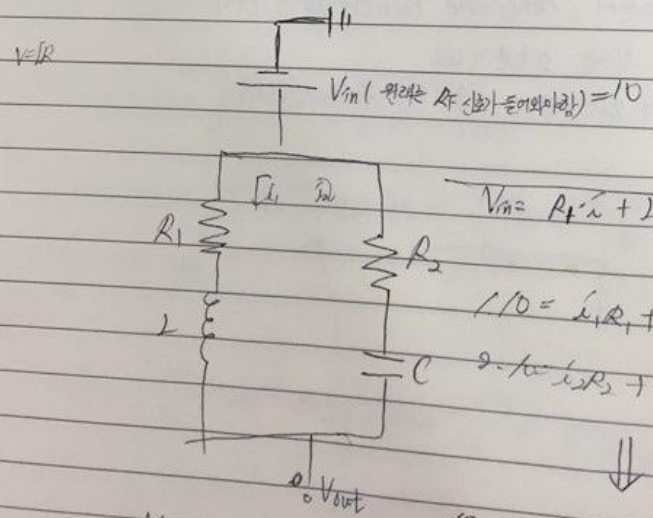 V=IR
Vin ( 원래는 RF 신호가 들어와야함) = 10
i₁ i₂
Vin = R₁·i +
R₁
R₂
1. 10 = i₁R₁ +
L
C
2. 10 = i₂R₂ +
Vout